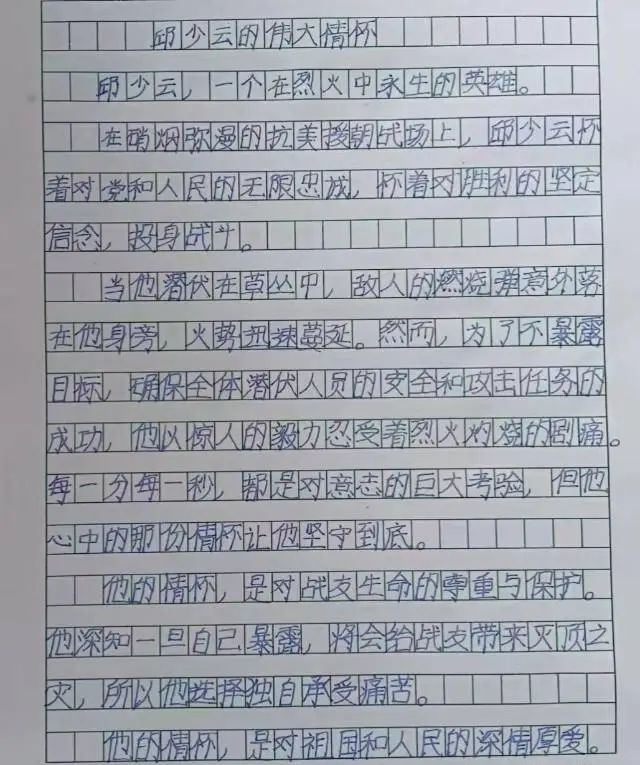 邱少云的伟大情怀
邱少云，一个在烈火中永生的英雄。
在硝烟弥漫的抗美援朝战场上，邱少云怀
着对党和人民的无限忠诚，怀着对胜利的坚定
信念，投身战斗。
当他潜伏在草丛中，敌人的燃烧弹意外落
在他身旁，火势迅速蔓延。然而，为了不暴露
目标，确保全体潜伏人员的安全和攻击任务的
成功，他以惊人的毅力忍受着烈火灼烧的剧痛。
每一分每一秒，都是对意志的巨大考验，但他
心中的那份情怀让他坚守到底。
他的情怀，是对战友生命的尊重与保护。
他深知一旦自己暴露，将会给战友带来灭顶之
灾，所以他选择独自承受痛苦。
他的情怀，是对祖国和人民的深情厚爱。